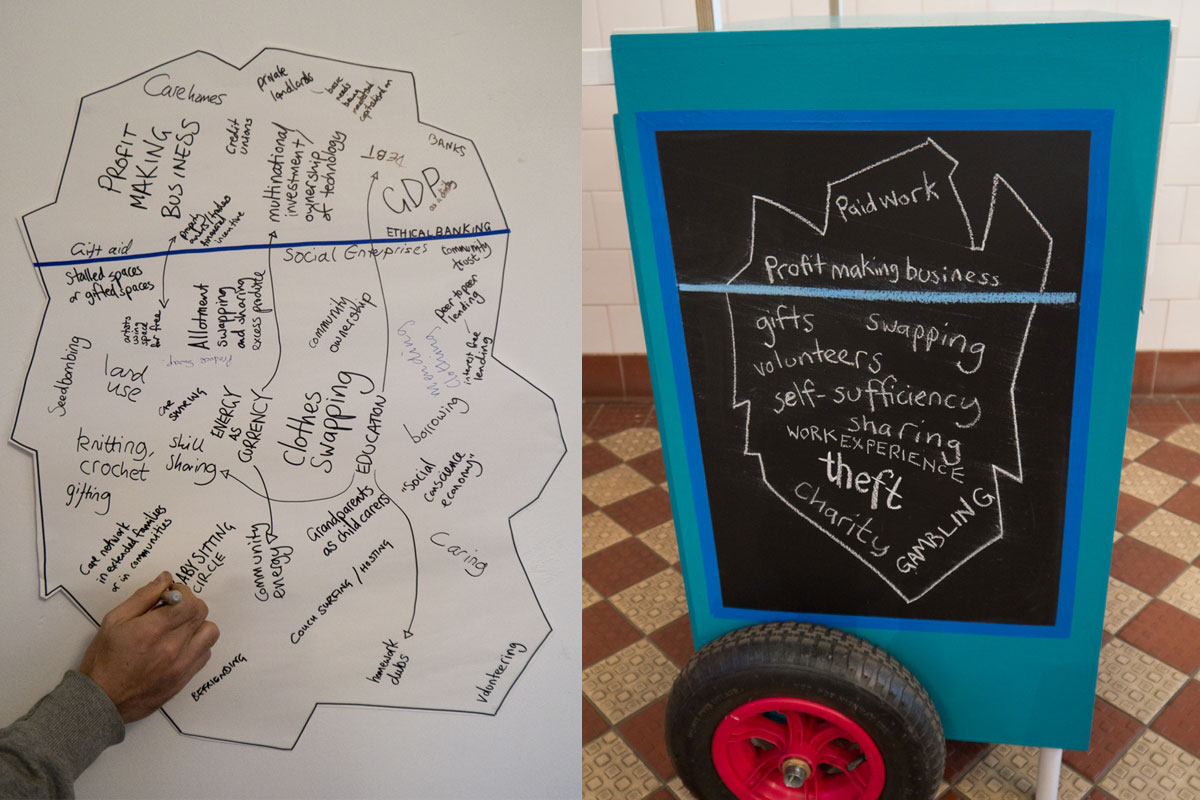 Care homes
private
landlords
basic
needs
being
neglected
capitalised on
PROFIT
MAKING
BUSINESS
credit
unions
multinational
investment/
ownership
of technology
DEBT
BANKS
GDP
ETHICAL BANKING
Gift aid
Social Enterprises
community
trust
Stalled spaces
or gifted spaces
artists
using
space
for free
Allotment
swapping
and sharing
excess produce
Produce Swap
community
ownership
peer to peer
lending
interest free
lending
clothes
mending
Seedbombing
land
use
ENERGY
AS
CURRENCY
Clothes
Swapping
EDUCATION
borrowing
knitting,
crochet
gifting
skill
sharing
"Social
conscience
economy"
Grandparents
as child carers
Care network
in extended families
or in communities
ABYSITTING
CIRCLE
community
energy
COUCH SURFING / HOSTING
Caring
homework
clubs
BEFRIENDING
Volunteering
Paid work
Profit making business
gifts swapping
volunteers
self-sufficiency
sharing
WORK EXPERIENCE
theft
Charity
GAMBLING